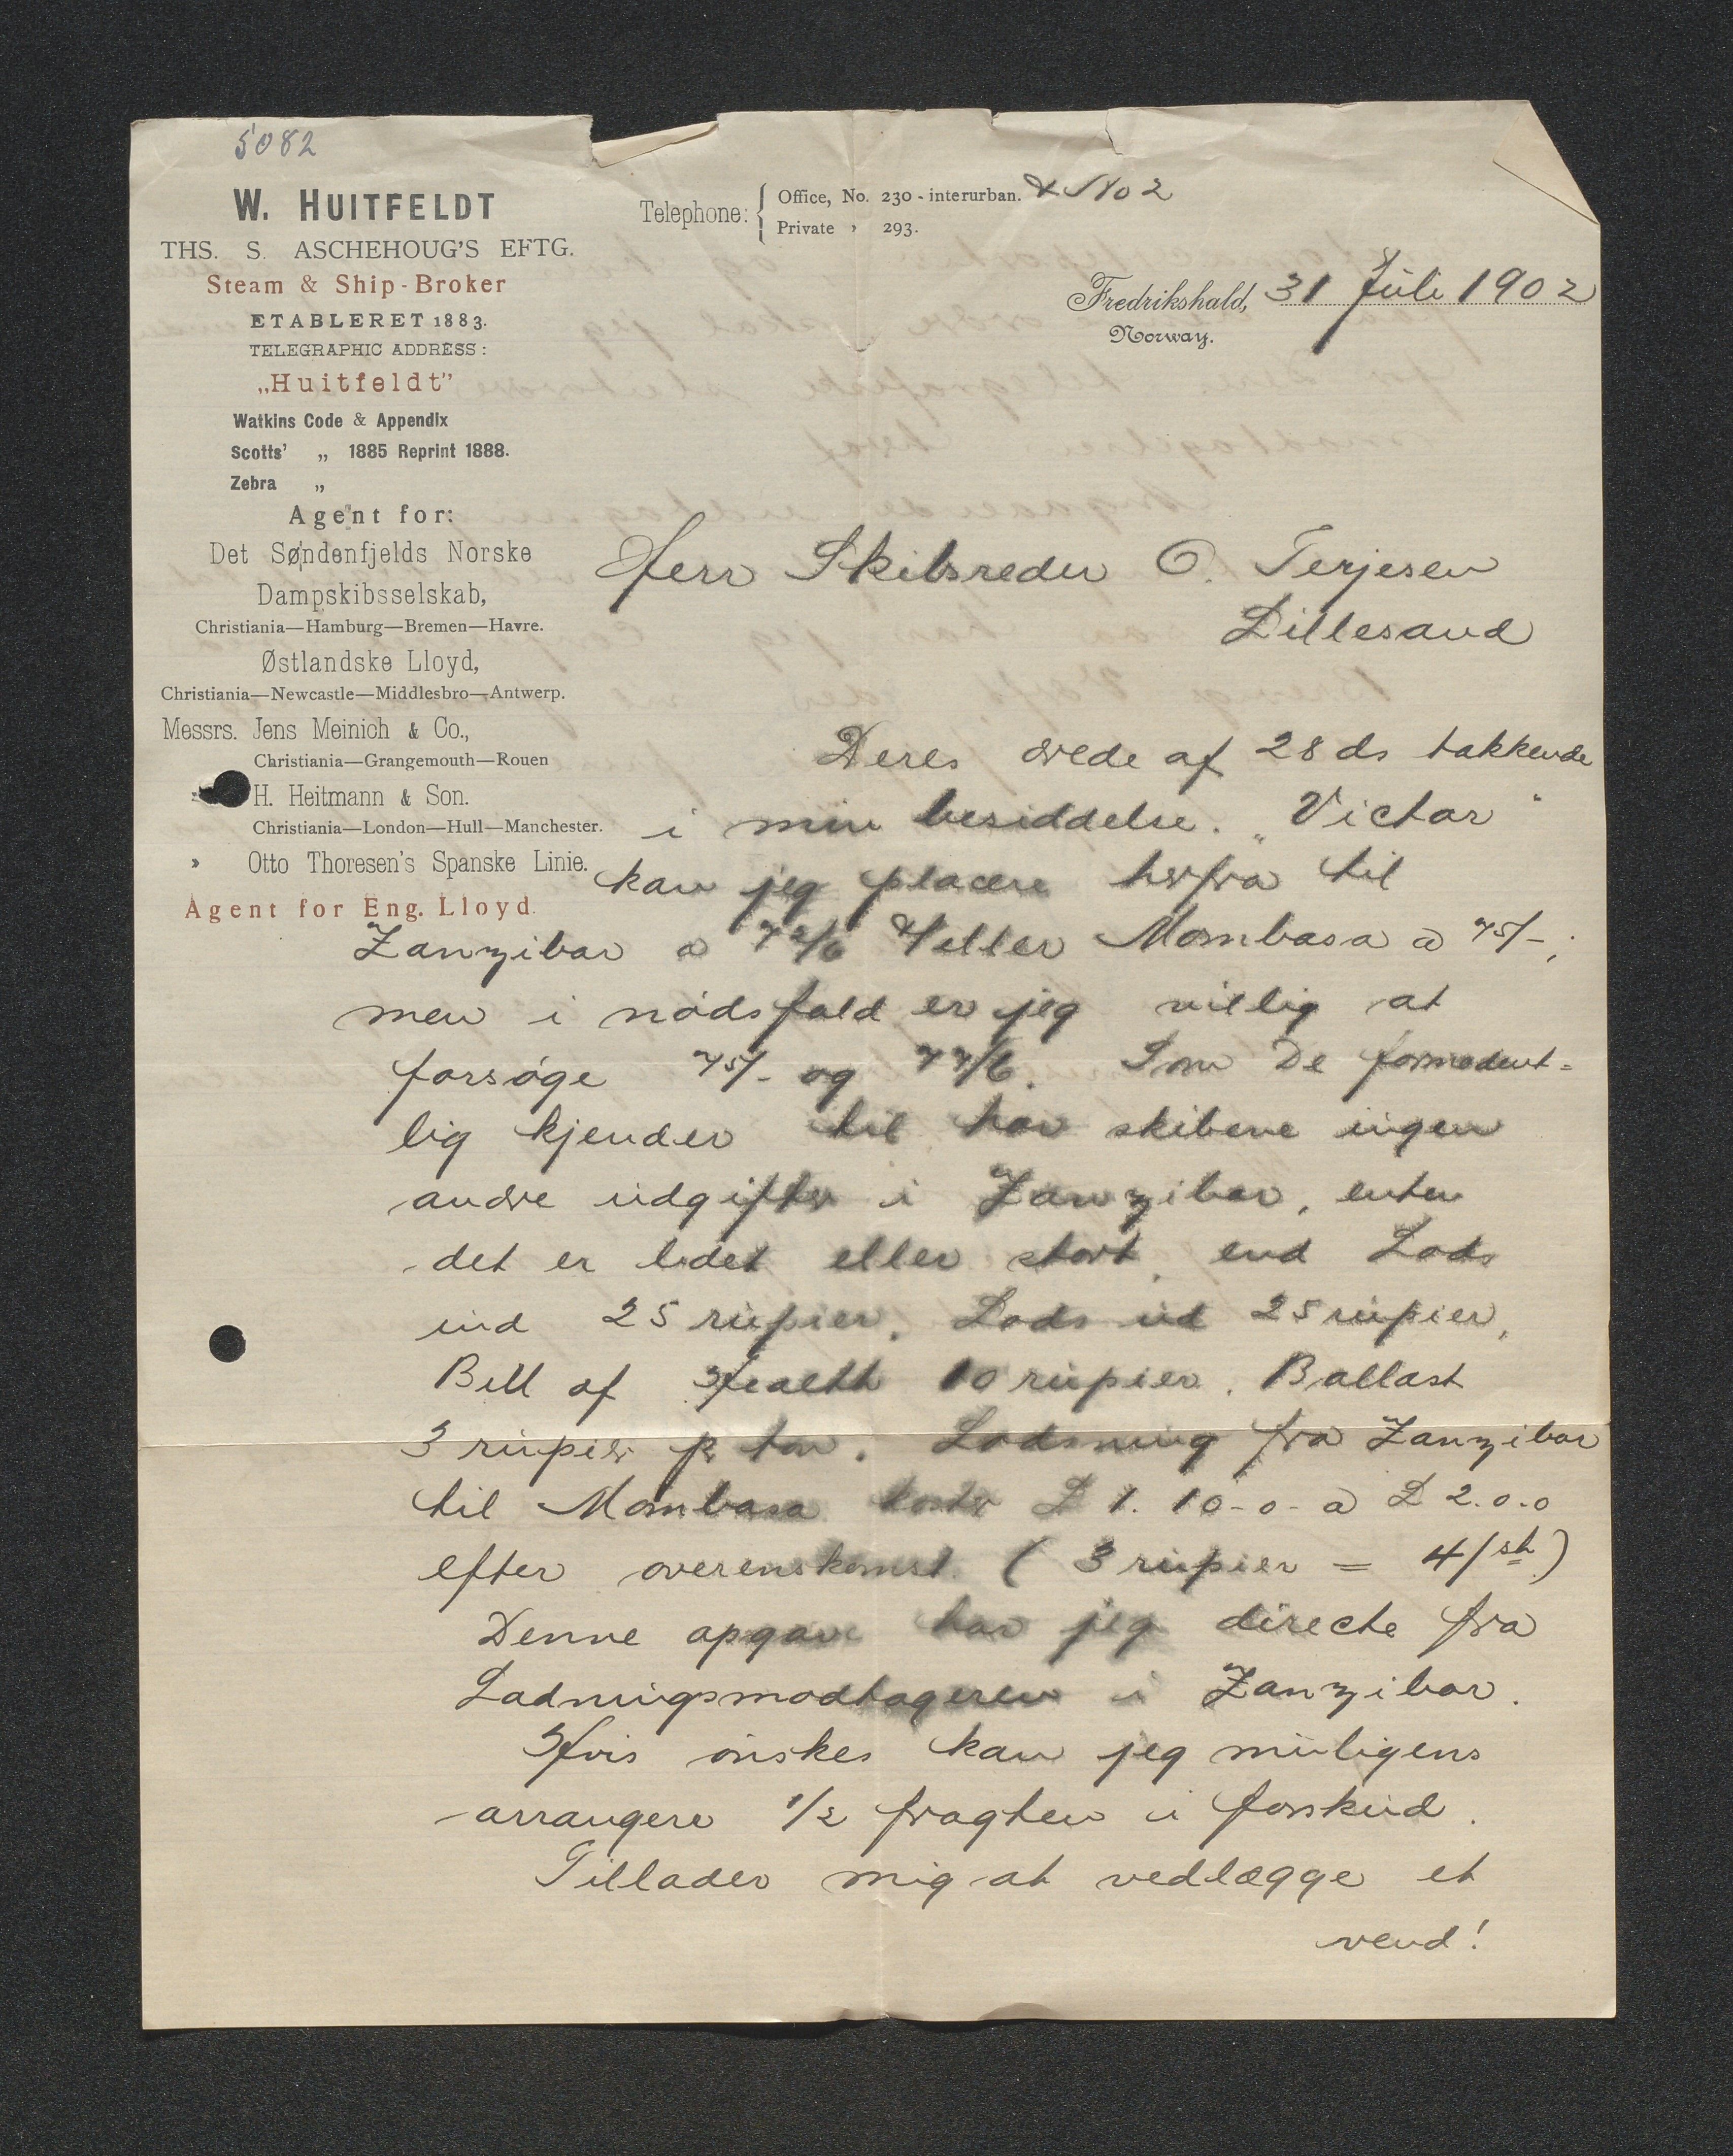 5082
W. HUITFELDT
THS. S. ASCHEHOUG'S EFTG.
Steam & Ship-Broker
ETABLERET 1883.
TELEGRAPHIC ADDRESS:
„Huitfeldt”
Watkins Code & Appendix
Scotts' „ 1885 Reprint 1888.
Zebra „
Agent for:
Det Søndenfjelds Norske
Dampskibsselskab,
Christiania—Hamburg—Bremen—Havre.
Østlandske Lloyd,
Christiania—Newcastle—Middlesbro—Antwerp.
Messrs. Jens Meinich & Co.,
Christiania—Grangemouth—Rouen
H. Heitmann & Son.
Christiania—London—Hull—Manchester.
» Otto Thoresen's Spanske Linie.
Agent for Eng. Lloyd.
Telephone: Office, No. 230 - interurban. & No 2
Private » 293.
Fredrikshald, 31 Juli 1902
Norway.
Herr Skibsreder O. Terjesen
Lillesand
Deres ærede af 28 ds takkende
i min besiddelse. „Victor”
kan jeg placere herfra til
Zanzibar a 72/6 eller Mombasa a 75/-;
men i nødsfald er jeg villig at
forsøge 75/- og 77/6. Som De formodent=
lig kjender til har skibene ingen
andre udgifter i Zanzibar, enten
det er lidet eller stort, end Lods
ind 25 rupier, Lods ud 25 rupier,
Bill of Health 10 rupier. Ballast
3 rupier pr ton. Lodsning fra Zanzibar
til Mombasa koster £ 1. 10-0- a £ 2.0.0
efter overenskomst. (3 rupier = 4/ st)
Denne opgave har jeg directe fra
Ladningsmodtageren i Zanzibar.
Hvis ønskes kan jeg muligens
arrangere 1/2 fragten i forskud.
Tillader mig at vedlægge et
vend!